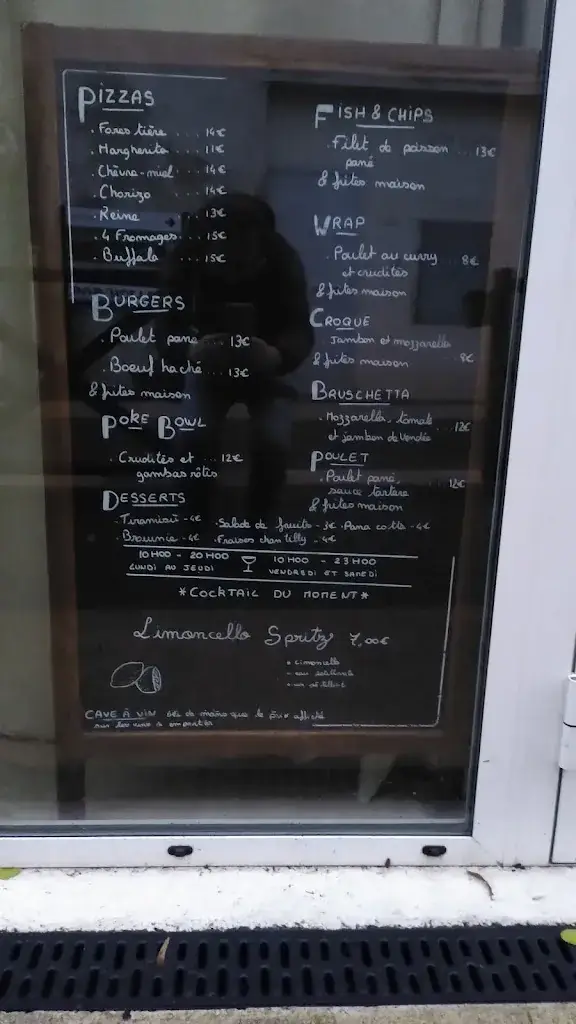 PIZZAS
. Forestière ... 14€
. Margherita ... 11€
. Chèvre-miel ... 14€
. Chorizo ... 14€
. Reine ... 13€
. 4 Fromages ... 15€
. Buffala ... 15€
BURGERS
. Poulet pané ... 13€
. Boeuf haché ... 13€
& frites maison
POKE BOWL
. Crudités et ... 12€
gambas rôtis
FISH & CHIPS
. Filet de poisson ... 13€
pané
& frites maison
WRAP
. Poulet au curry ... 8€
et crudités
& frites maison
CROQUE
Jambon et mozzarella
& frites maison ... 8€
BRUSCHETTA
. Mozzarella, tomate
et jambon de Vendée ... 12€
POULET
. Poulet pané, ... 12€
sauce tartare
& frites maison
DESSERTS
. Tiramisu - 4€ . Salade de fruits - 3€ . Pana cotta - 4€
. Brownie - 4€ . Fraises chantilly - 4€
10H00 - 20H00
LUNDI AU JEUDI
10H00 - 23H00
VENDREDI ET SAMEDI
*COCKTAIL DU MOMENT*
Limoncello Spritz 7,00€
limoncello
CAVE À VIN de moins que le prix affiché
sur les vins à emporter